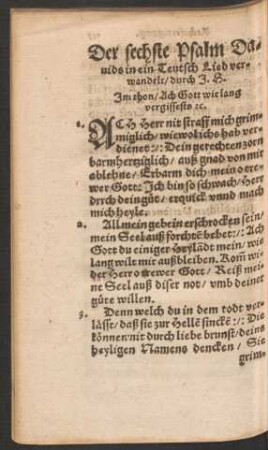 Der sechste Psalm Da-
uids in ein Teutsch Lied ver-
wandelt / durch J. S.
Im thon / Ach Gott wie lang
vergissests ꝛc.
1. ACH Herr nit straff mich grim-
miglich / wiewol ichs hab ver-
dienet :/: Dein gerechten zorn
barmhertziglich / auß gnad von mir
ablehne / Erbarm dich mein o tre-
wer Gott: Ich bin so schwach / Herr
durch dein güt / erquick vnnd mach
mich heyle.
2. All mein gebein erschrocken sein /
mein Seel auß forcht bebet :/: Ach
Gott du einiger Heylād mein / wie
lang wilt mit außbleiben. Kom̄ wi-
der Herr o trewer Gott / Reiß mei-
ne Seel auß diser not / vmb deiner
güte willen.
3. Denn welch du in dem todt ver-
lässt / daß sie zur Hellē sinckē :/: Die
können nit durch liebe brunst / deins
heyligen Namens dencken / Sie
grim-